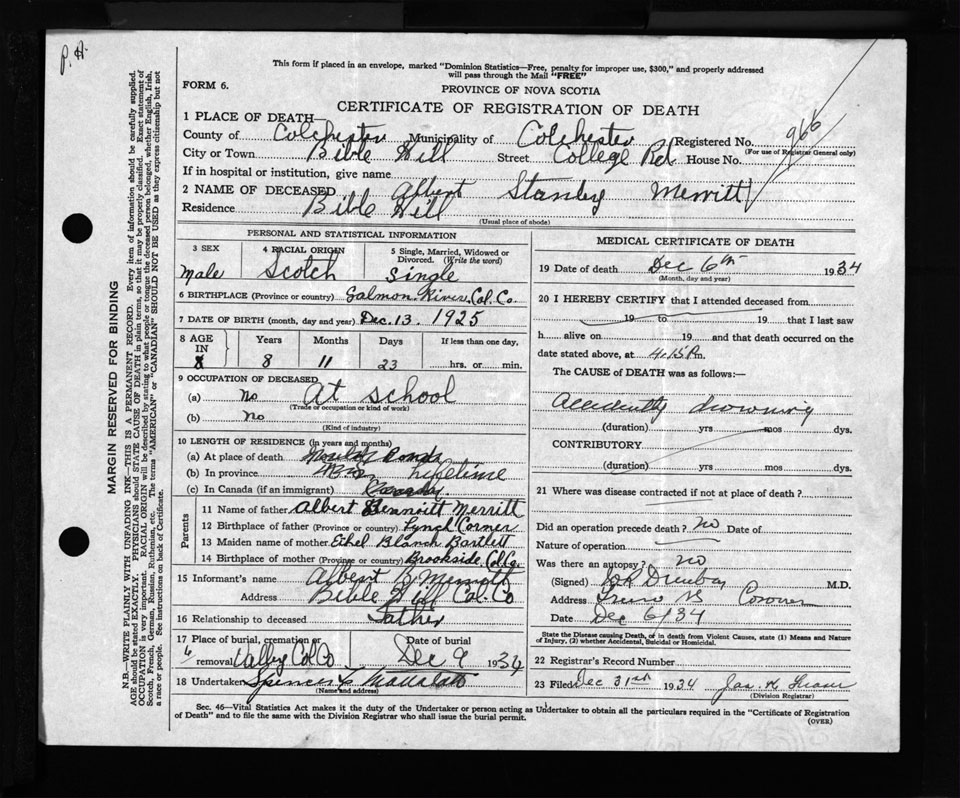 P. H.
This form if placed in an envelope, marked "Dominion Statistics—Free, penalty for improper use, $300," and properly addressed
will pass through the Mail "FREE"
FORM 6.
PROVINCE OF NOVA SCOTIA
CERTIFICATE OF REGISTRATION OF DEATH
1 PLACE OF DEATH—
County of Colchester Municipality of Colchester Registered No. 966
(For use of Registrar General only)
City or Town Bible Hill Street College Rd House No.
If in hospital or institution, give name
2 NAME OF DECEASED Albert Stanley Merritt
Residence Bible Hill
(Usual place of abode)
PERSONAL AND STATISTICAL INFORMATION
3 SEX 4 RACIAL ORIGIN 5 Single, Married, Widowed or Divorced. (Write the word)
Male Scotch Single
6 BIRTHPLACE (Province or country) Salmon River, Col. Co.
7 DATE OF BIRTH (month, day and year) Dec. 13. 1925
8 AGE IN Years Months Days If less than one day,
8 8 11 23 hrs. or min.
9 OCCUPATION OF DECEASED
(a) No At school
(Trade or occupation or kind of work)
(b) No
(Kind of industry)
10 LENGTH OF RESIDENCE (in years and months)
(a) At place of death
(b) In province Lifetime
(c) In Canada (if an immigrant)
Parents
11 Name of father Albert Bennoitt Merritt
12 Birthplace of father (Province or country) Lynch Corner
13 Maiden name of mother Ethel Blanch Bartlett
14 Birthplace of mother (Province or country) Brookside, Col. Co.
15 Informant's name Albert B Merritt
Address Bible Hill Col. Co
16 Relationship to deceased Father
17 Place of burial, cremation or removal Valley Col Co
Date of burial Dec 9 1934
18 Undertaker Spencer &
(Name and address)
MEDICAL CERTIFICATE OF DEATH
19 Date of death Dec 6th 1934
(Month, day and year)
20 I HEREBY CERTIFY that I attended deceased from
19 to 19 that I last saw
h alive on 19 and that death occurred on the
date stated above, at 4.15 P.m.
The CAUSE of DEATH was as follows:—
Accidently drowning
(duration) yrs mos dys.
CONTRIBUTORY
(duration) yrs mos dys.
21 Where was disease contracted if not at place of death?
Did an operation precede death? no Date of
Nature of operation
Was there an autopsy? no
(Signed) M.D.
Address Truro NS Coroner
Date Dec 6/34
State the Disease causing Death, or in death from Violent Causes, state (1) Means and Nature
of Injury, (2) whether Accidental, Suicidal or Homicidal.
22 Registrar's Record Number
23 Filed Dec 31st 1934 Jas. H.
(Division Registrar)
Sec. 46—Vital Statistics Act makes it the duty of the Undertaker or person acting as Undertaker to obtain all the particulars required in the "Certificate of Registration
of Death" and to file the same with the Division Registrar who shall issue the burial permit.
(OVER)
MARGIN RESERVED FOR BINDING
N.B.—WRITE PLAINLY WITH UNFADING INK—THIS IS A PERMANENT RECORD. Every item of information should be carefully supplied.
AGE should be stated EXACTLY. PHYSICIANS should STATE CAUSE OF DEATH in plain terms, so that it may be properly classified. Exact statement of
OCCUPATION is very important. RACIAL ORIGIN will be described by stating to what people or tongue the deceased person belonged, whether English, Irish,
Scotch, French, German, Russian, Ruthenian, etc. The terms "AMERICAN" or "CANADIAN" SHOULD NOT BE USED as they express citizenship but not
a race or people. See instructions on back of Certificate.